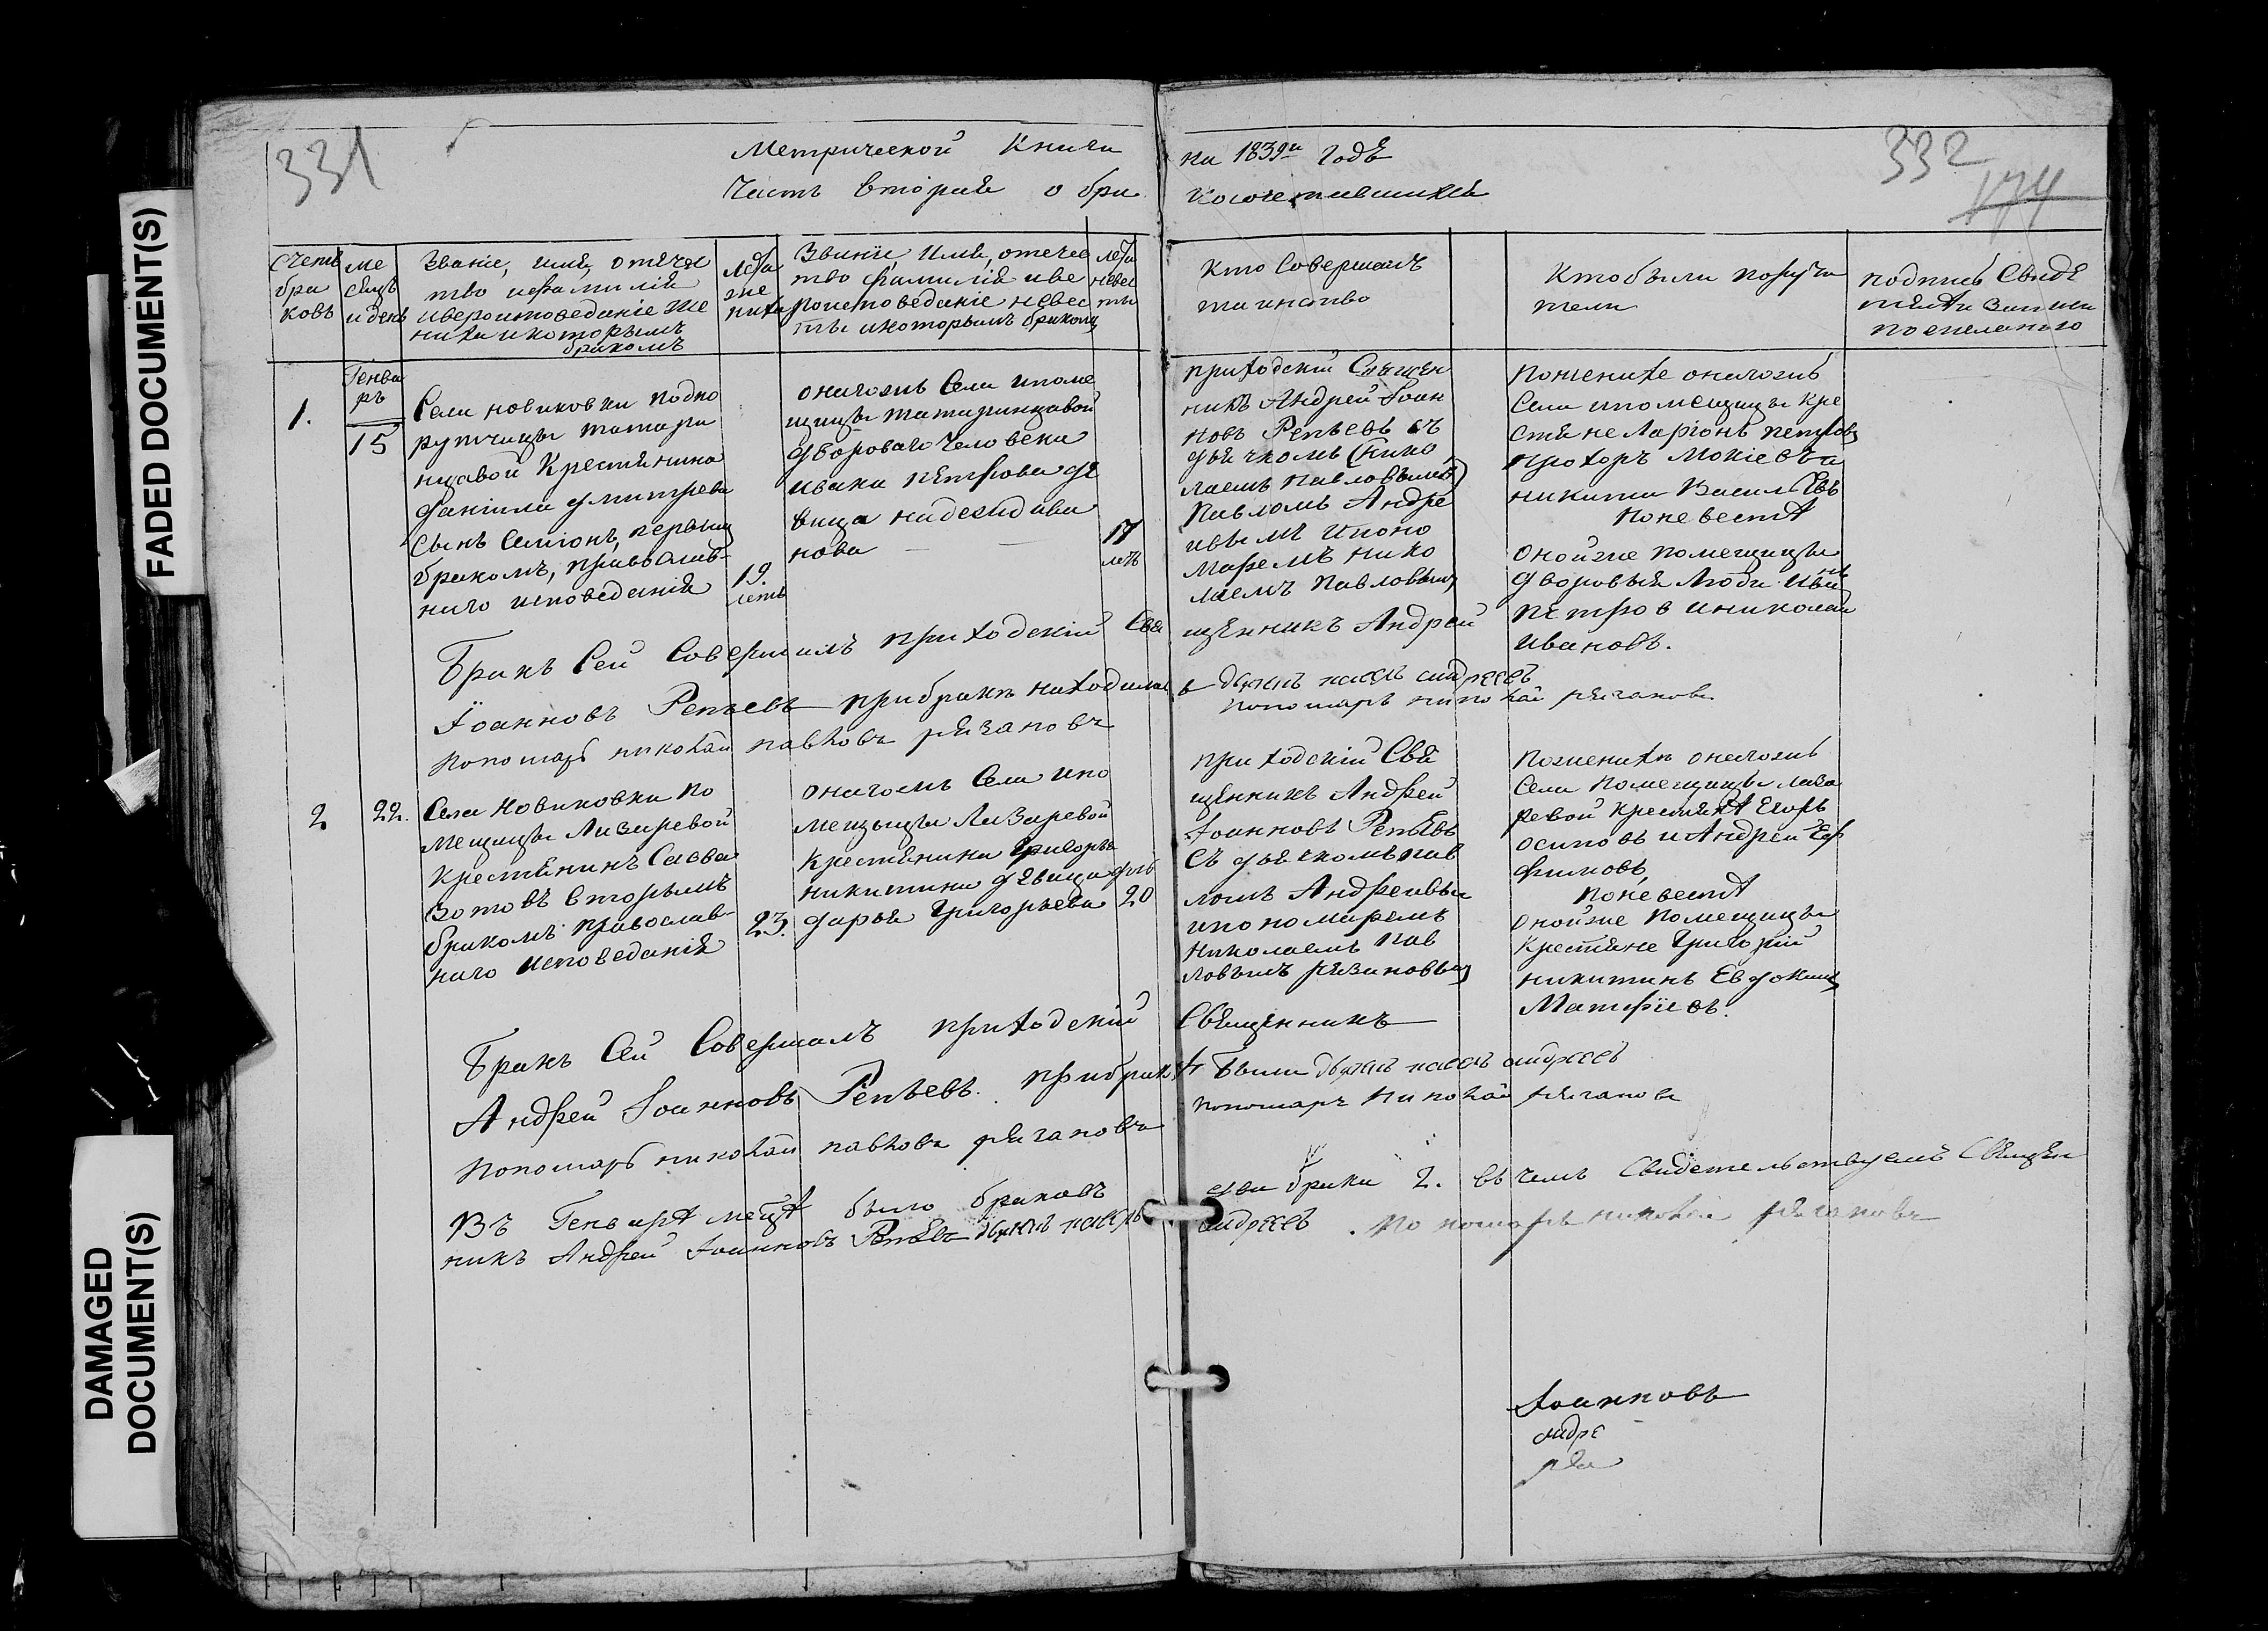 331
332
174
Метрической Книги на 1839й годъ
Часть вторая о бракосочетавшихся
Счетъ
бра
ковъ
ме
сецъ
и день
Званіе, имя, отечес
тво и фамилія
и вероисповеданіе же
ниха и которымъ
бракомъ
лета
же
ниха
Званіе, Имя, отечес
тво фамилія и ве
роисповеданіе невес
ты и которымъ бракомъ
лета
невес
ты
Кто Совершалъ
таинство
Кто были поручи
тели
подпись Свиде
телей записи
по желанію
1.
Генва
ръ
15
Села новиковки подпо
рутчицы татари
нцовой Крестянина
даніила дмитрева
сынъ Симіонъ, первым
бракомъ, православ-
наго исповеданія
19.
летъ
онагожъ Села и поме
щицы татаринцовой
двороваго человека
ивана петрова де
вица надежда ива
нова
17
летъ
приходскій Священ
никъ Андрей Іоан
новъ Репьевъ съ
дьячкомъ (Нико
лаемъ Павловымъ)
Павломъ Андре
ивымъ и поно
маремъ нико
лаемъ Павловым
по женихе онагожъ
Села и помещицы кре
стяне Ларіонъ петров
прохоръ Мокіевъ и
никита Василевъ
по невесте
оной же помещицы
дворовыя люди иванъ
петров и николаи
ивановъ.
Бракъ Сей Совершилъ приходскій Свя щенникъ Андрей
Іоанновъ Репьевъ при браке находилис ь дьячекъ павелъ андреевъ
пономарь николай рязановъ
пономарь николай павловъ рязановъ
2
22.
Села Новиковки по
мещицы Лазаревой
Крестянинъ Савва
Зотовъ вторымъ
бракомъ православ-
наго исповеданія
23.
онагожъ Села и по
мещицы Лазаревой
крестянина Григорья
никитина девица
дарья Григорьева
20
приходскій Свя
щенникъ Андрей
Іоанновъ Репьевъ
съ дьячкомъ пав
ломъ Андреивы
и пономаремъ
николаемъ пав
ловымъ рязановым
по женихе онагожъ
Села помещицы лаза
ревой крестяне Егоръ
осиповъ и Андрей Еф
фимовъ,
по невесте
оной же помещицы
крестяне Григорій
никитинъ Евдоким
Матфіевъ.
Бракъ Сей Совершалъ приходскій Священникъ
Андрей Іоанновъ Репьевъ. при браке были дьячекъ павелъ андреевъ
пономарь николай рязановъ
пономарь николай павловъ рязановъ
Въ Генваре месце было браковъ два брака 2. въ чемъ Свидетельствуемъ Священ
никъ Андрей Іоанновъ Репьевъ дьячекъ павелъ андреевъ. пономарь николай рязановъ
Іоанновъ
андре
ряз
FADED DOCUMENT(S)
DAMAGED
DOCUMENT(S)